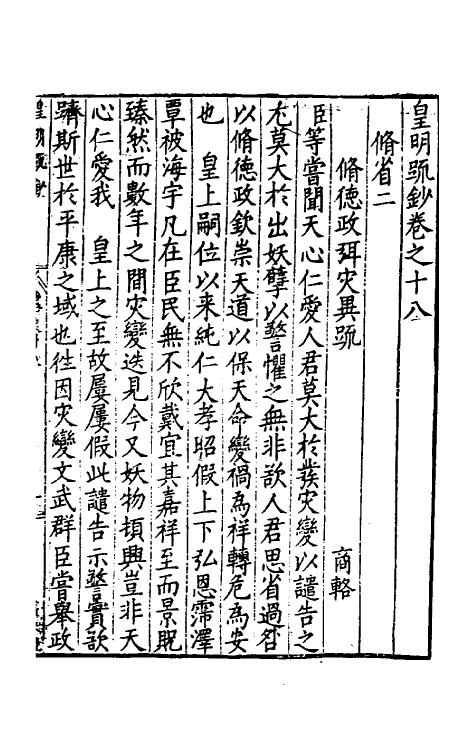 皇明疏鈔卷之十八
脩省二
脩德政弭灾異疏
商輅
臣等嘗聞天心仁愛人君莫大於發灾變以譴告之
尤莫大於出妖孽以警懼之無非欲人君思省過咎
以脩德政欽崇天道以保天命變禍為祥轉危為安
也 皇上嗣位以来純仁大孝昭假上下弘恩霈澤
覃被海宇凡在臣民無不欣戴宜其嘉祥至而景貺
臻然而數年之間灾變迭見今又妖物頓興豈非天
心仁愛我 皇上之至故屢屢假此譴告示警實欲
躋斯世於平康之域也往因灾變文武群臣嘗舉政
皇明疏鈔